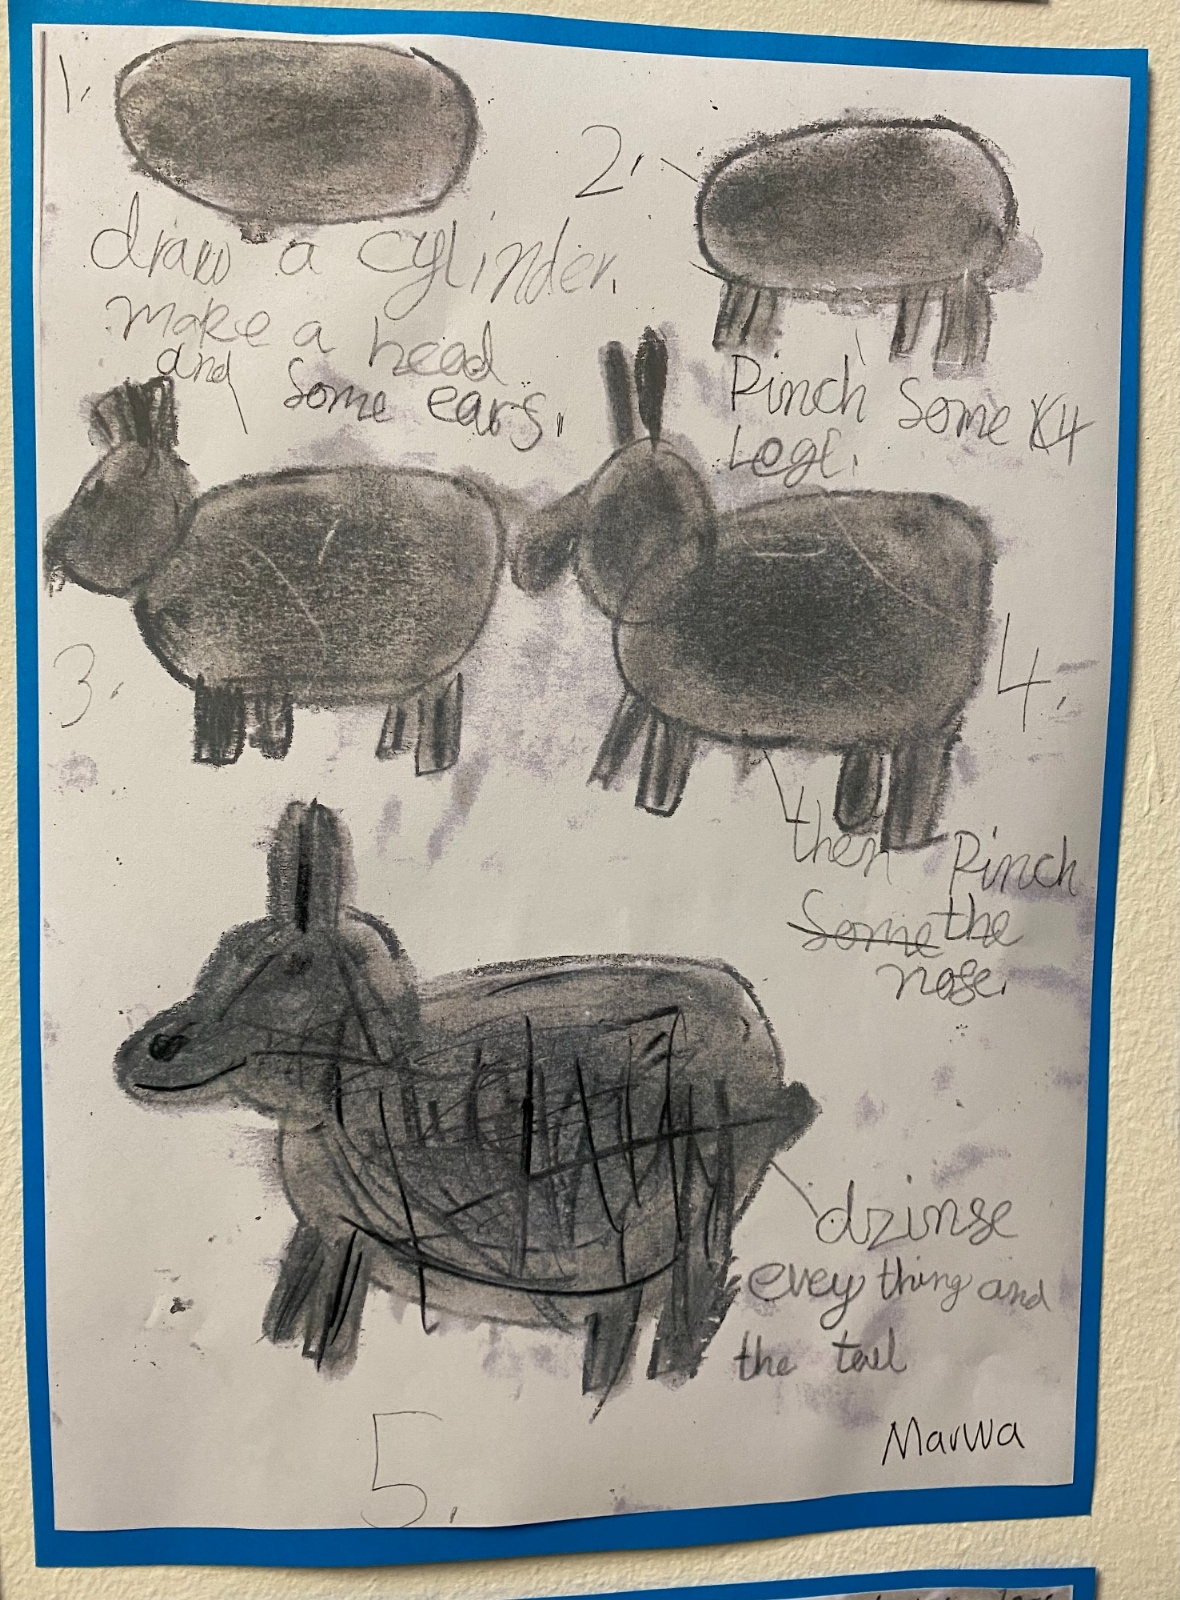 1.
draw a cylinder.
2.
Pinch Some 4
Legs.
make a head
and Some ears.
3.
4.
then Pinch
Some the
nose.
5.
dzinse
evey thing and
the tail
Marwa